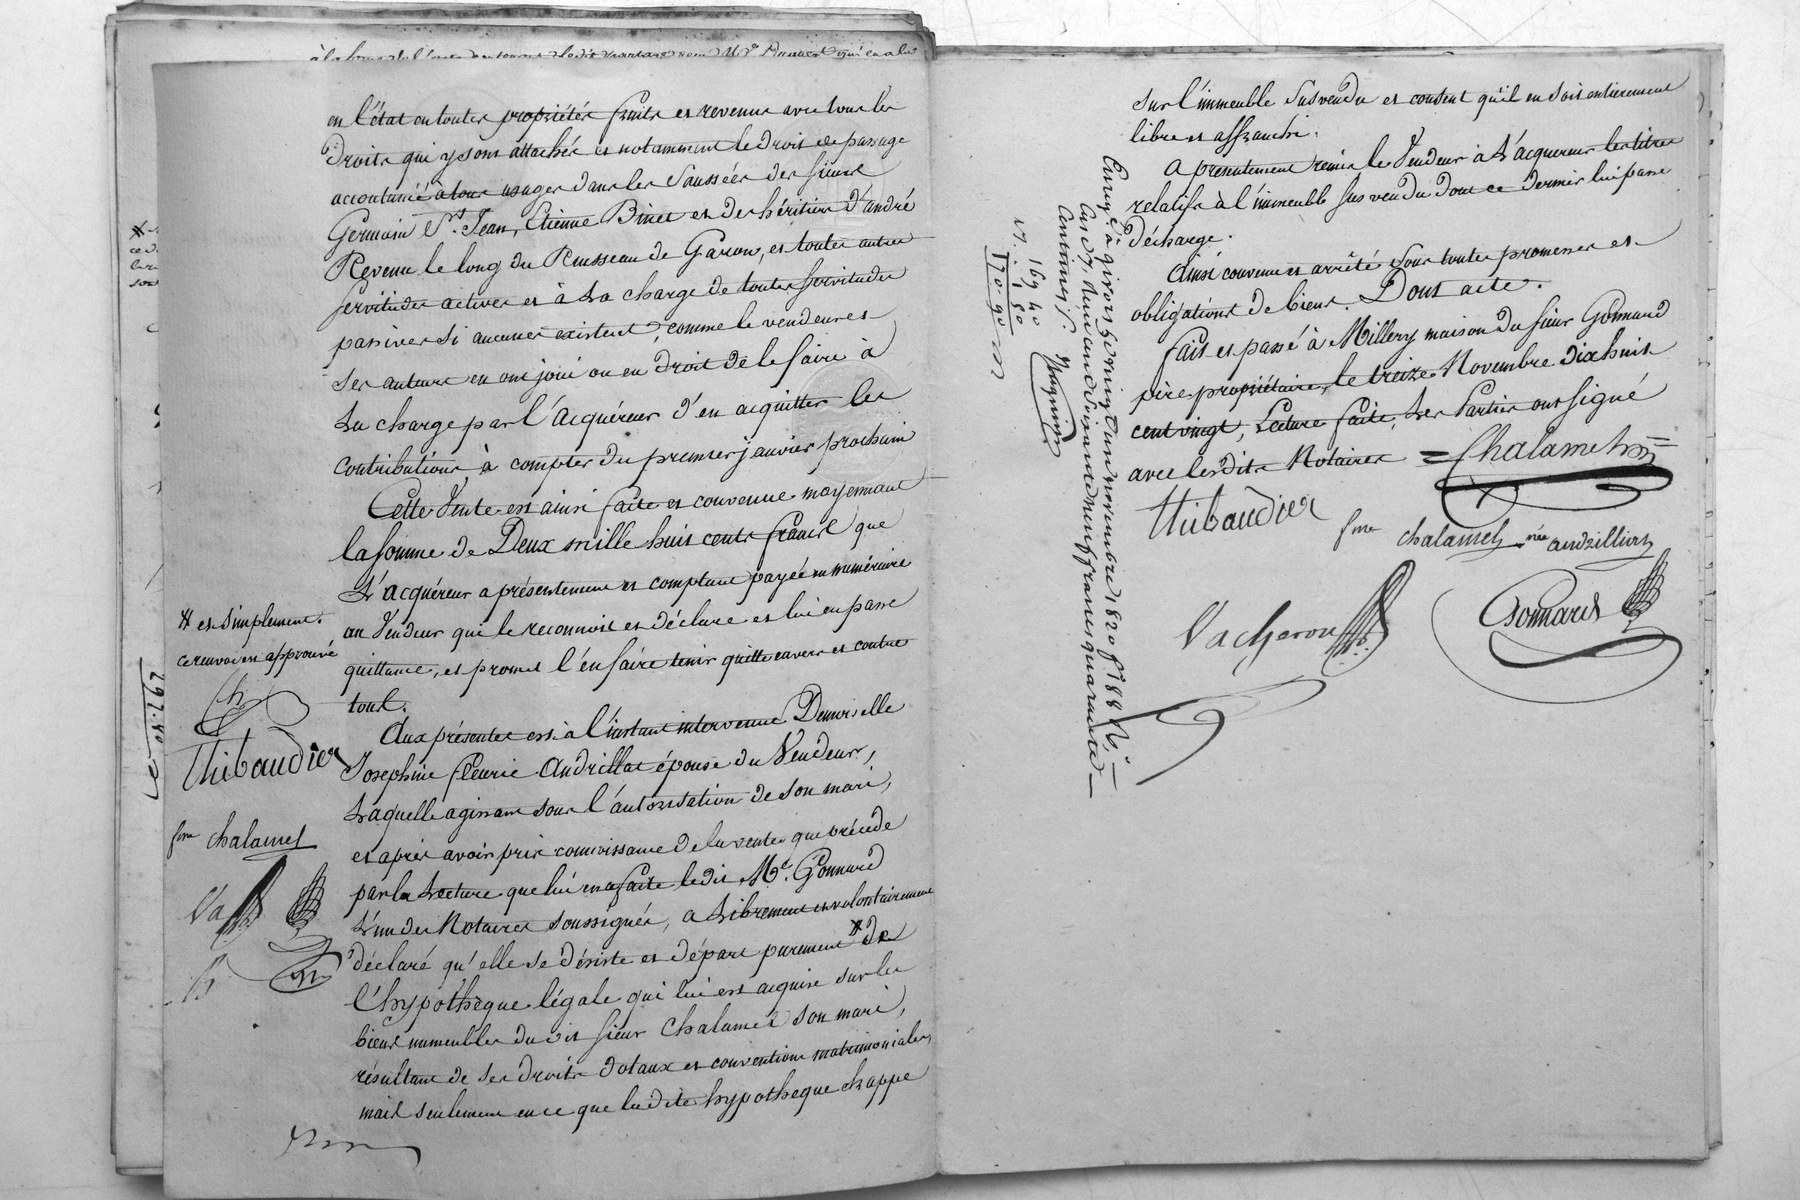 en l'état en toutes propriétés fruits et revenus avec tous les
Droits qui y sont attachés et notamment le droit de passage
accoutumé à tous usages dans les Saussées des Sieurs
Germain St. Jean, Etienne Binet et des héritiers d'andré
Revenu le long du Ruisseau de Garon, et toutes autres
servitudes actives et à La charge de toutes servitudes
passives si aucunes existent, comme le vendeur et
ses auteurs en ont joui ou eu droit de le faire à
La charge par l'acquéreur d'en acquitter les
contributions à compter du premier janvier prochain
Cette Vente est ainsi faite et convenue moyennant
la somme de Deux mille huit cents francs que
L'acquéreur a présentement et comptant payée en numéraire
au Vendeur qui le reconnoit et déclare et lui en passe
quittance, et promet l'en faire tenir quitte envers et contre
tous.
Aux présentes est à l'instant intervenue Demoiselle
Josephine fleurie Andrillat épouse du Vendeur,
Laquelle agissant sous l'autorisation de son mari,
et après avoir pris connoissance de la vente que précède
par la Lecture que lui en a faite ledit Me. Gonnard
L'un des Notaires soussignés, a Librement et volontairement
déclaré qu'elle se désiste et départ purement # de
l'hypothèque légale qui lui est acquise sur les
biens immeubles du dit Sieur Chalamel son mari,
résultant de ses droits dotaux et conventions matrimoniales,
mais seulement en ce que ladite hypotheque frappe
# et simplement.
ce renvoi est approuvé
Ch
Thibaudier
fme chalamel
Va
297.50
sur l'immeuble sus vendu et consent qu'il en soit entierement
libre et affranchi.
A présentement remis le Vendeur à L'acquereur les titres
relatifs à l'immeuble sus vendu dont ce dernier lui passe
décharge.
Ainsi convenu et arrêté sous toutes promesses et
obligations de biens. Dont acte.
fait et passé à Millery maison du Sieur Gonnard
père propriétaire, le treize Novembre dix huit
cent vingt, Lecture faite, Les Parties ont signé
avec lesdits Notaires = Chalamel =
Thibaudier
fme chalamel née andrillat
Vacheron
Gonnard
Enregé. à givors le vingt un novembre 1820 fo. 188
Cas. 7. Reçu cent soixante neuf francs quarante
Centimes.
169 40
1 50
170 90